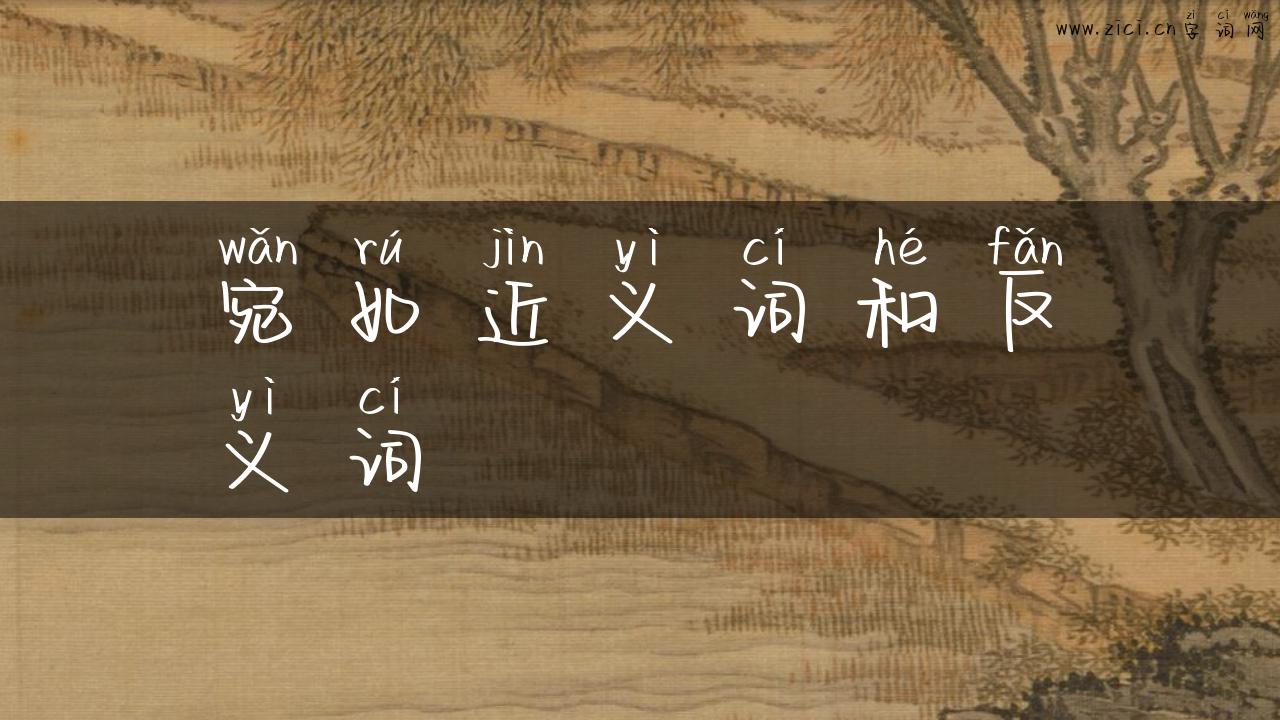 zì cí wǎng
www.zici.cn字词网
wǎn rú jìn yì cí hé fǎn
宛如近义词和反
yì cí
义词